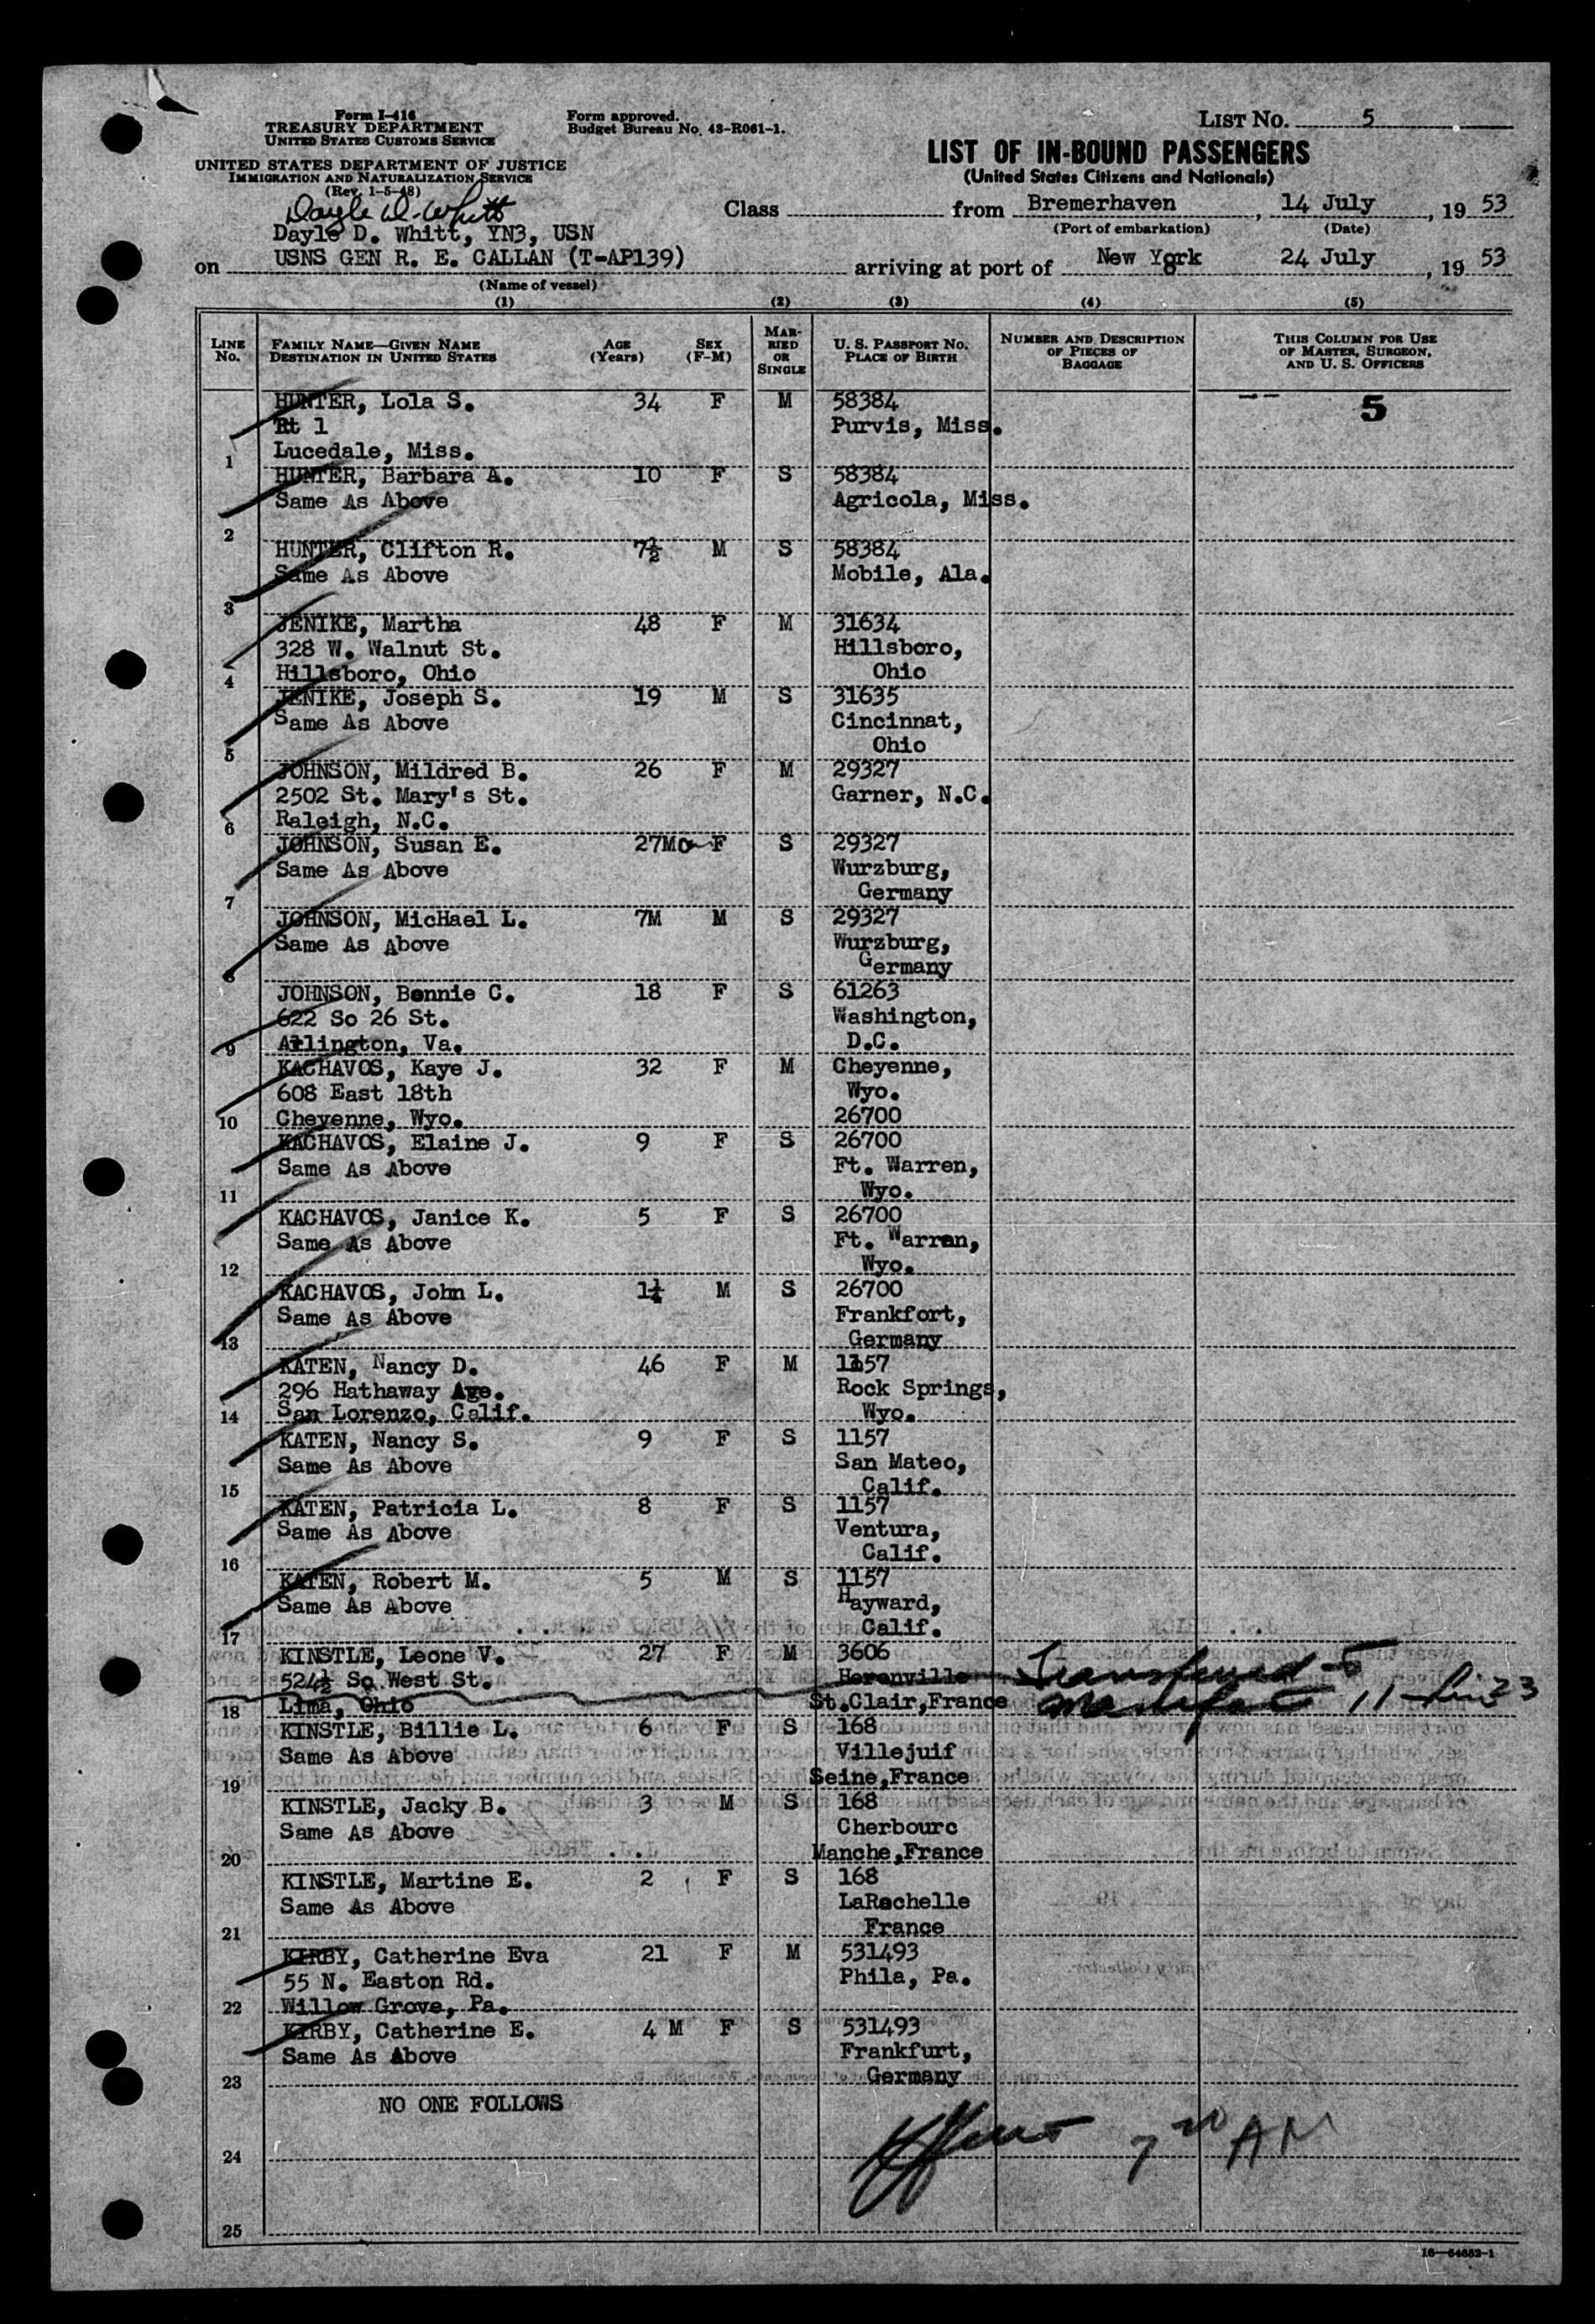 Form I-416
TREASURY DEPARTMENT
UNITED STATES CUSTOMS SERVICE
UNITED STATES DEPARTMENT OF JUSTICE
IMMIGRATION AND NATURALIZATION SERVICE
(Rev. 1-5-48)
Form approved.
Budget Bureau No. 43-R061-1.
LIST NO. 5
LIST OF IN-BOUND PASSENGERS
(United States Citizens and Nationals)
Dayle D. Whitt
Dayle D. Whitt, YN3, USN
Class from Bremerhaven, 14 July, 19 53
(Port of embarkation) (Date)
on USNS GEN R. E. CALLAN (T-AP139) arriving at port of New York 24 July, 19 53
(Name of vessel)
(1) (2) (3) (4) (5)
LINE No. FAMILY NAME—GIVEN NAME DESTINATION IN UNITED STATES AGE (Years) SEX (F-M) MARRIED OR SINGLE U. S. PASSPORT NO. PLACE OF BIRTH NUMBER AND DESCRIPTION OF PIECES OF BAGGAGE THIS COLUMN FOR USE OF MASTER, SURGEON, AND U. S. OFFICERS
HUNTER, Lola S. 34 F M 58384 5
Rt 1 Purvis, Miss.
1 Lucedale, Miss.
HUNTER, Barbara A. 10 F S 58384
Same As Above Agricola, Miss.
2
HUNTER, Clifton R. 7½ M S 58384
Same As Above Mobile, Ala.
3
JENIKE, Martha 48 F M 31634
328 W. Walnut St. Hillsboro,
4 Hillsboro, Ohio Ohio
JENIKE, Joseph S. 19 M S 31635
Same As Above Cincinnat,
5 Ohio
JOHNSON, Mildred B. 26 F M 29327
2502 St. Mary's St. Garner, N.C.
6 Raleigh, N.C.
JOHNSON, Susan E. 27Mo F S 29327
Same As Above Wurzburg,
7 Germany
JOHNSON, MicHael L. 7M M S 29327
Same As Above Wurzburg,
8 Germany
JOHNSON, Bennie C. 18 F S 61263
622 So 26 St. Washington,
9 Arlington, Va. D.C.
KACHAVOS, Kaye J. 32 F M Cheyenne,
608 East 18th Wyo.
10 Cheyenne, Wyo. 26700
KACHAVOS, Elaine J. 9 F S 26700
Same As Above Ft. Warren,
11 Wyo.
KACHAVOS, Janice K. 5 F S 26700
Same As Above Ft. Warren,
12 Wyo.
KACHAVOS, John L. 1¼ M S 26700
Same As Above Frankfort,
13 Germany
KATEN, Nancy D. 46 F M 1157
296 Hathaway Ave. Rock Springs,
14 San Lorenzo, Calif. Wyo.
KATEN, Nancy S. 9 F S 1157
Same As Above San Mateo,
15 Calif.
KATEN, Patricia L. 8 F S 1157
Same As Above Ventura,
16 Calif.
KATEN, Robert M. 5 M S 1157
Same As Above Hayward,
17 Calif.
KINSTLE, Leone V. 27 F M 3606
524½ So West St. Herenville Transferred to
18 Lima, Ohio St.Clair,France Manifest 11 Line 23
KINSTLE, Billie L. 6 F S 168
Same As Above Villejuif
19 Seine,France
KINSTLE, Jacky B. 3 M S 168
Same As Above Cherbourc
20 Manche,France
KINSTLE, Martine E. 2 F S 168
Same As Above LaRochelle
21 France
KIRBY, Catherine Eva 21 F M 531493
55 N. Easton Rd. Phila, Pa.
22 Willow Grove, Pa.
KIRBY, Catherine E. 4 M F S 531493
Same As Above Frankfurt,
23 Germany
NO ONE FOLLOWS
7 20 AM
24
25
16—54652-1